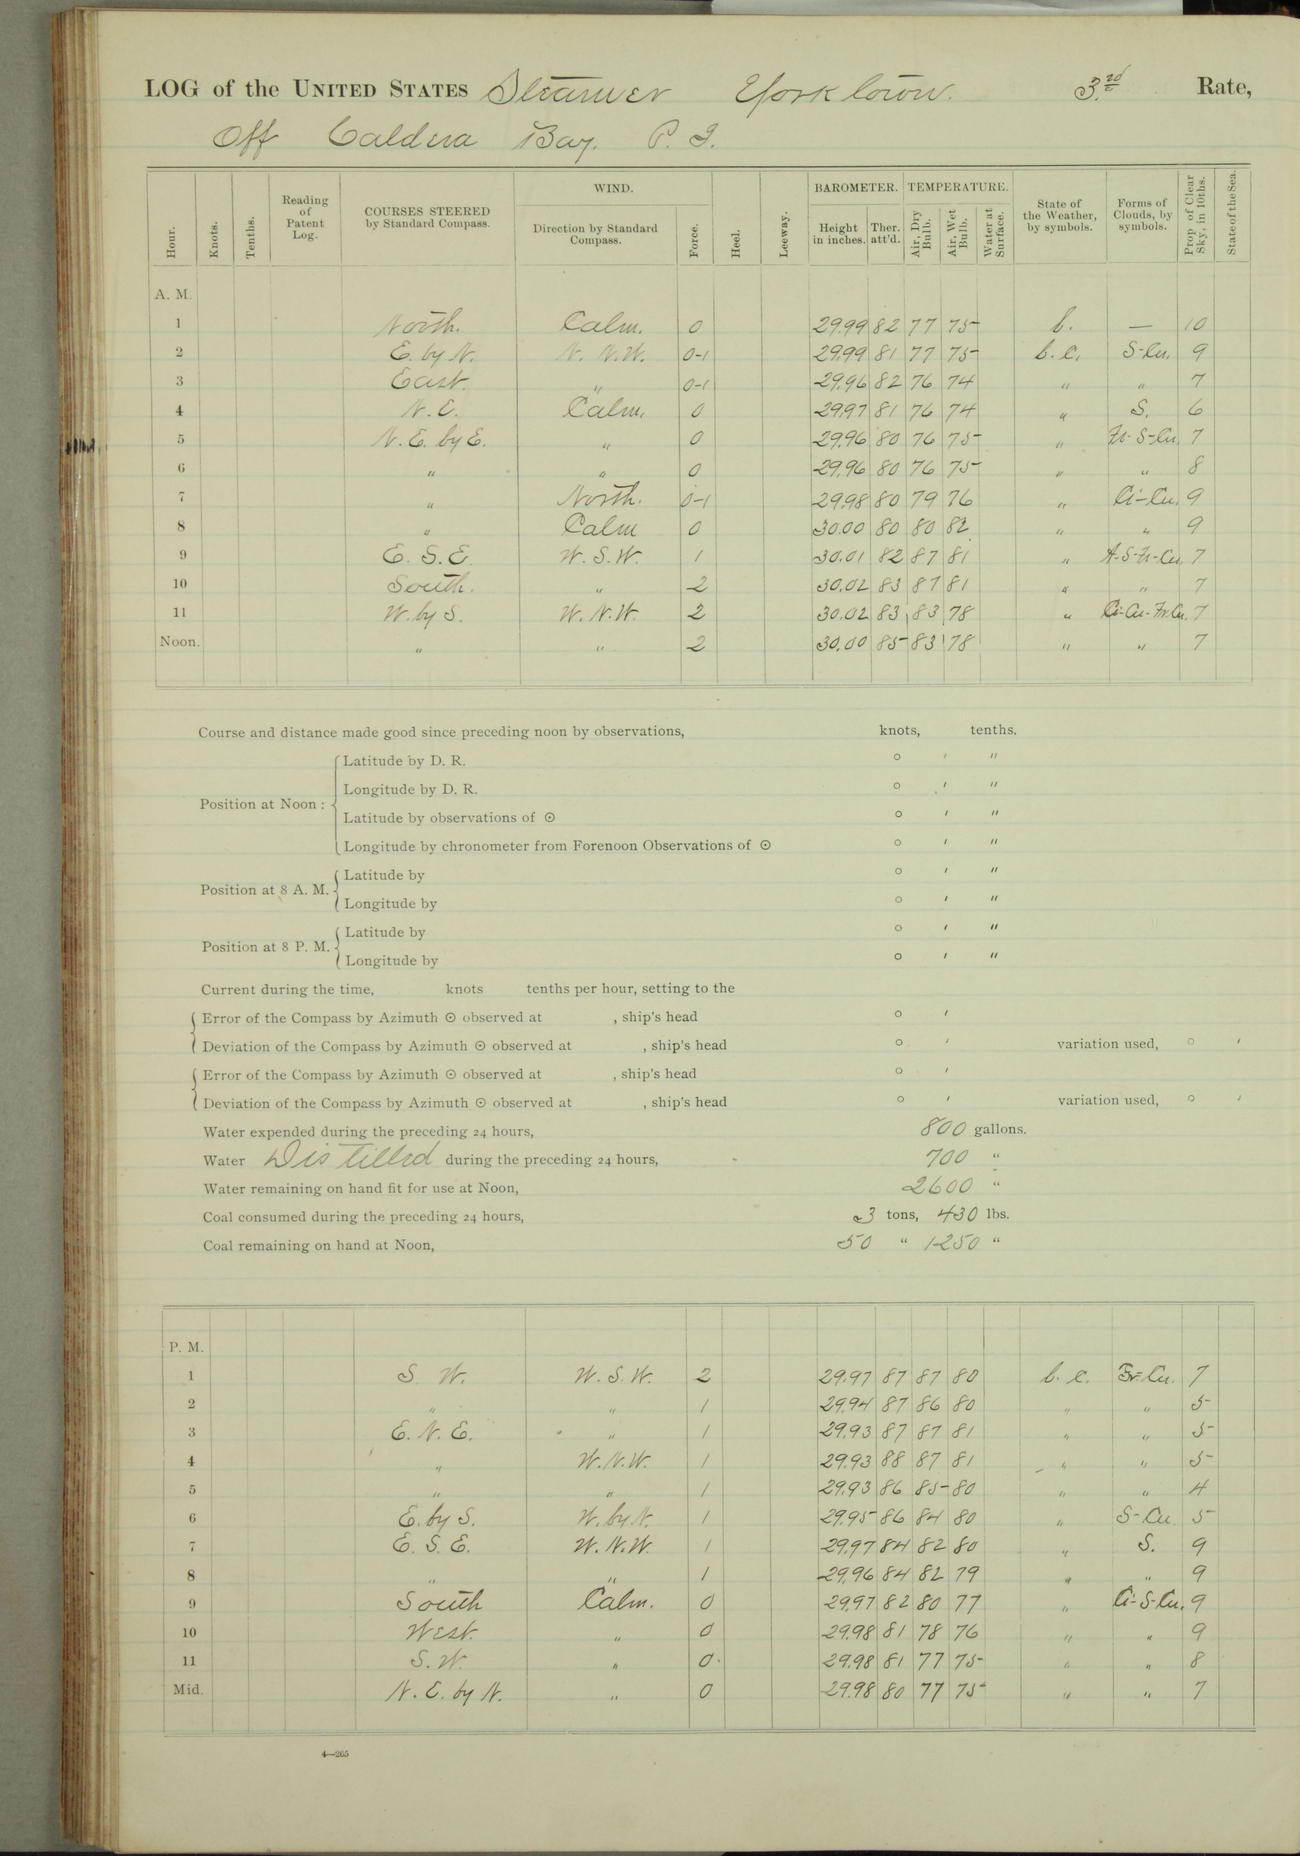 LOG of the UNITED STATES Steamer Yorktown. 3.rd Rate,
Off Caldera Bay. P. I.
Hour. Knots. Tenths. Reading of Patent Log. COURSES STEERED by Standard Compass. WIND. Direction by Standard Compass. Force. Heel. Leeway. BAROMETER. Height in inches. Ther. att'd. TEMPERATURE. Air, Dry Bulb. Air, Wet Bulb. Water at Surface. State of the Weather, by symbols. Forms of Clouds, by symbols. Prop. of Clear Sky, in 10ths. State of the Sea.
A. M.
1 North. Calm. 0 29.99 82 77 75 b. — 10
2 E. by N. N. N.W. 0-1 29.99 81 77 75 b. c. S-Cu. 9
3 East. " 0-1 29.96 82 76 74 " " 7
4 N. E. Calm. 0 29.97 81 76 74 " S. 6
5 N. E. by E. " 0 29.96 80 76 75 " Fr-S-Cu. 7
6 " " 0 29.96 80 76 75 " " 8
7 " North. 0-1 29.98 80 79 76 " Ci-Cu. 9
8 " Calm 0 30.00 80 80 82 " " 9
9 E. S. E. W. S. W. 1 30.01 82 87 81 " A-S-Fr-Cu. 7
10 South. " 2 30.02 83 87 81 " " 7
11 W. by S. W. N. W. 2 30.02 83 83 78 " Ci-Cu-Fr.Cu. 7
Noon. " " 2 30.00 85 83 78 " " 7
Course and distance made good since preceding noon by observations, knots, tenths.
Position at Noon :
Latitude by D. R. ° ′ ″
Longitude by D. R. ° ′ ″
Latitude by observations of ☉ ° ′ ″
Longitude by chronometer from Forenoon Observations of ☉ ° ′ ″
Position at 8 A. M.
Latitude by ° ′ ″
Longitude by ° ′ ″
Position at 8 P. M.
Latitude by ° ′ ″
Longitude by ° ′ ″
Current during the time, knots tenths per hour, setting to the
Error of the Compass by Azimuth ☉ observed at , ship's head ° ′
Deviation of the Compass by Azimuth ☉ observed at , ship's head ° ′ variation used, ° ′
Error of the Compass by Azimuth ☉ observed at , ship's head ° ′
Deviation of the Compass by Azimuth ☉ observed at , ship's head ° ′ variation used, ° ′
Water expended during the preceding 24 hours, 800 gallons.
Water Distilled during the preceding 24 hours, 700 "
Water remaining on hand fit for use at Noon, 2600 "
Coal consumed during the preceding 24 hours, 3 tons, 430 lbs.
Coal remaining on hand at Noon, 50 " 1250 "
P. M.
1 S. W. W. S. W. 2 29.97 87 87 80 b. c. Fr-Cu. 7
2 " " 1 29.94 87 86 80 " " 5
3 E. N. E. " 1 29.93 87 87 81 " " 5
4 " W. N. W. 1 29.93 88 87 81 " " 5
5 " " 1 29.93 86 85 80 " " 4
6 E. by S. W. by N. 1 29.95 86 84 80 " S-Cu. 5
7 E. S. E. W. N. W. 1 29.97 84 82 80 " S. 9
8 " " 1 29.96 84 82 79 " " 9
9 South Calm. 0 29.97 82 80 77 " Ci-S-Cu. 9
10 West. " 0 29.98 81 78 76 " " 9
11 S. W. " 0 29.98 81 77 75 " " 8
Mid. N. E. by N. " 0 29.98 80 77 75 " " 7
4—265